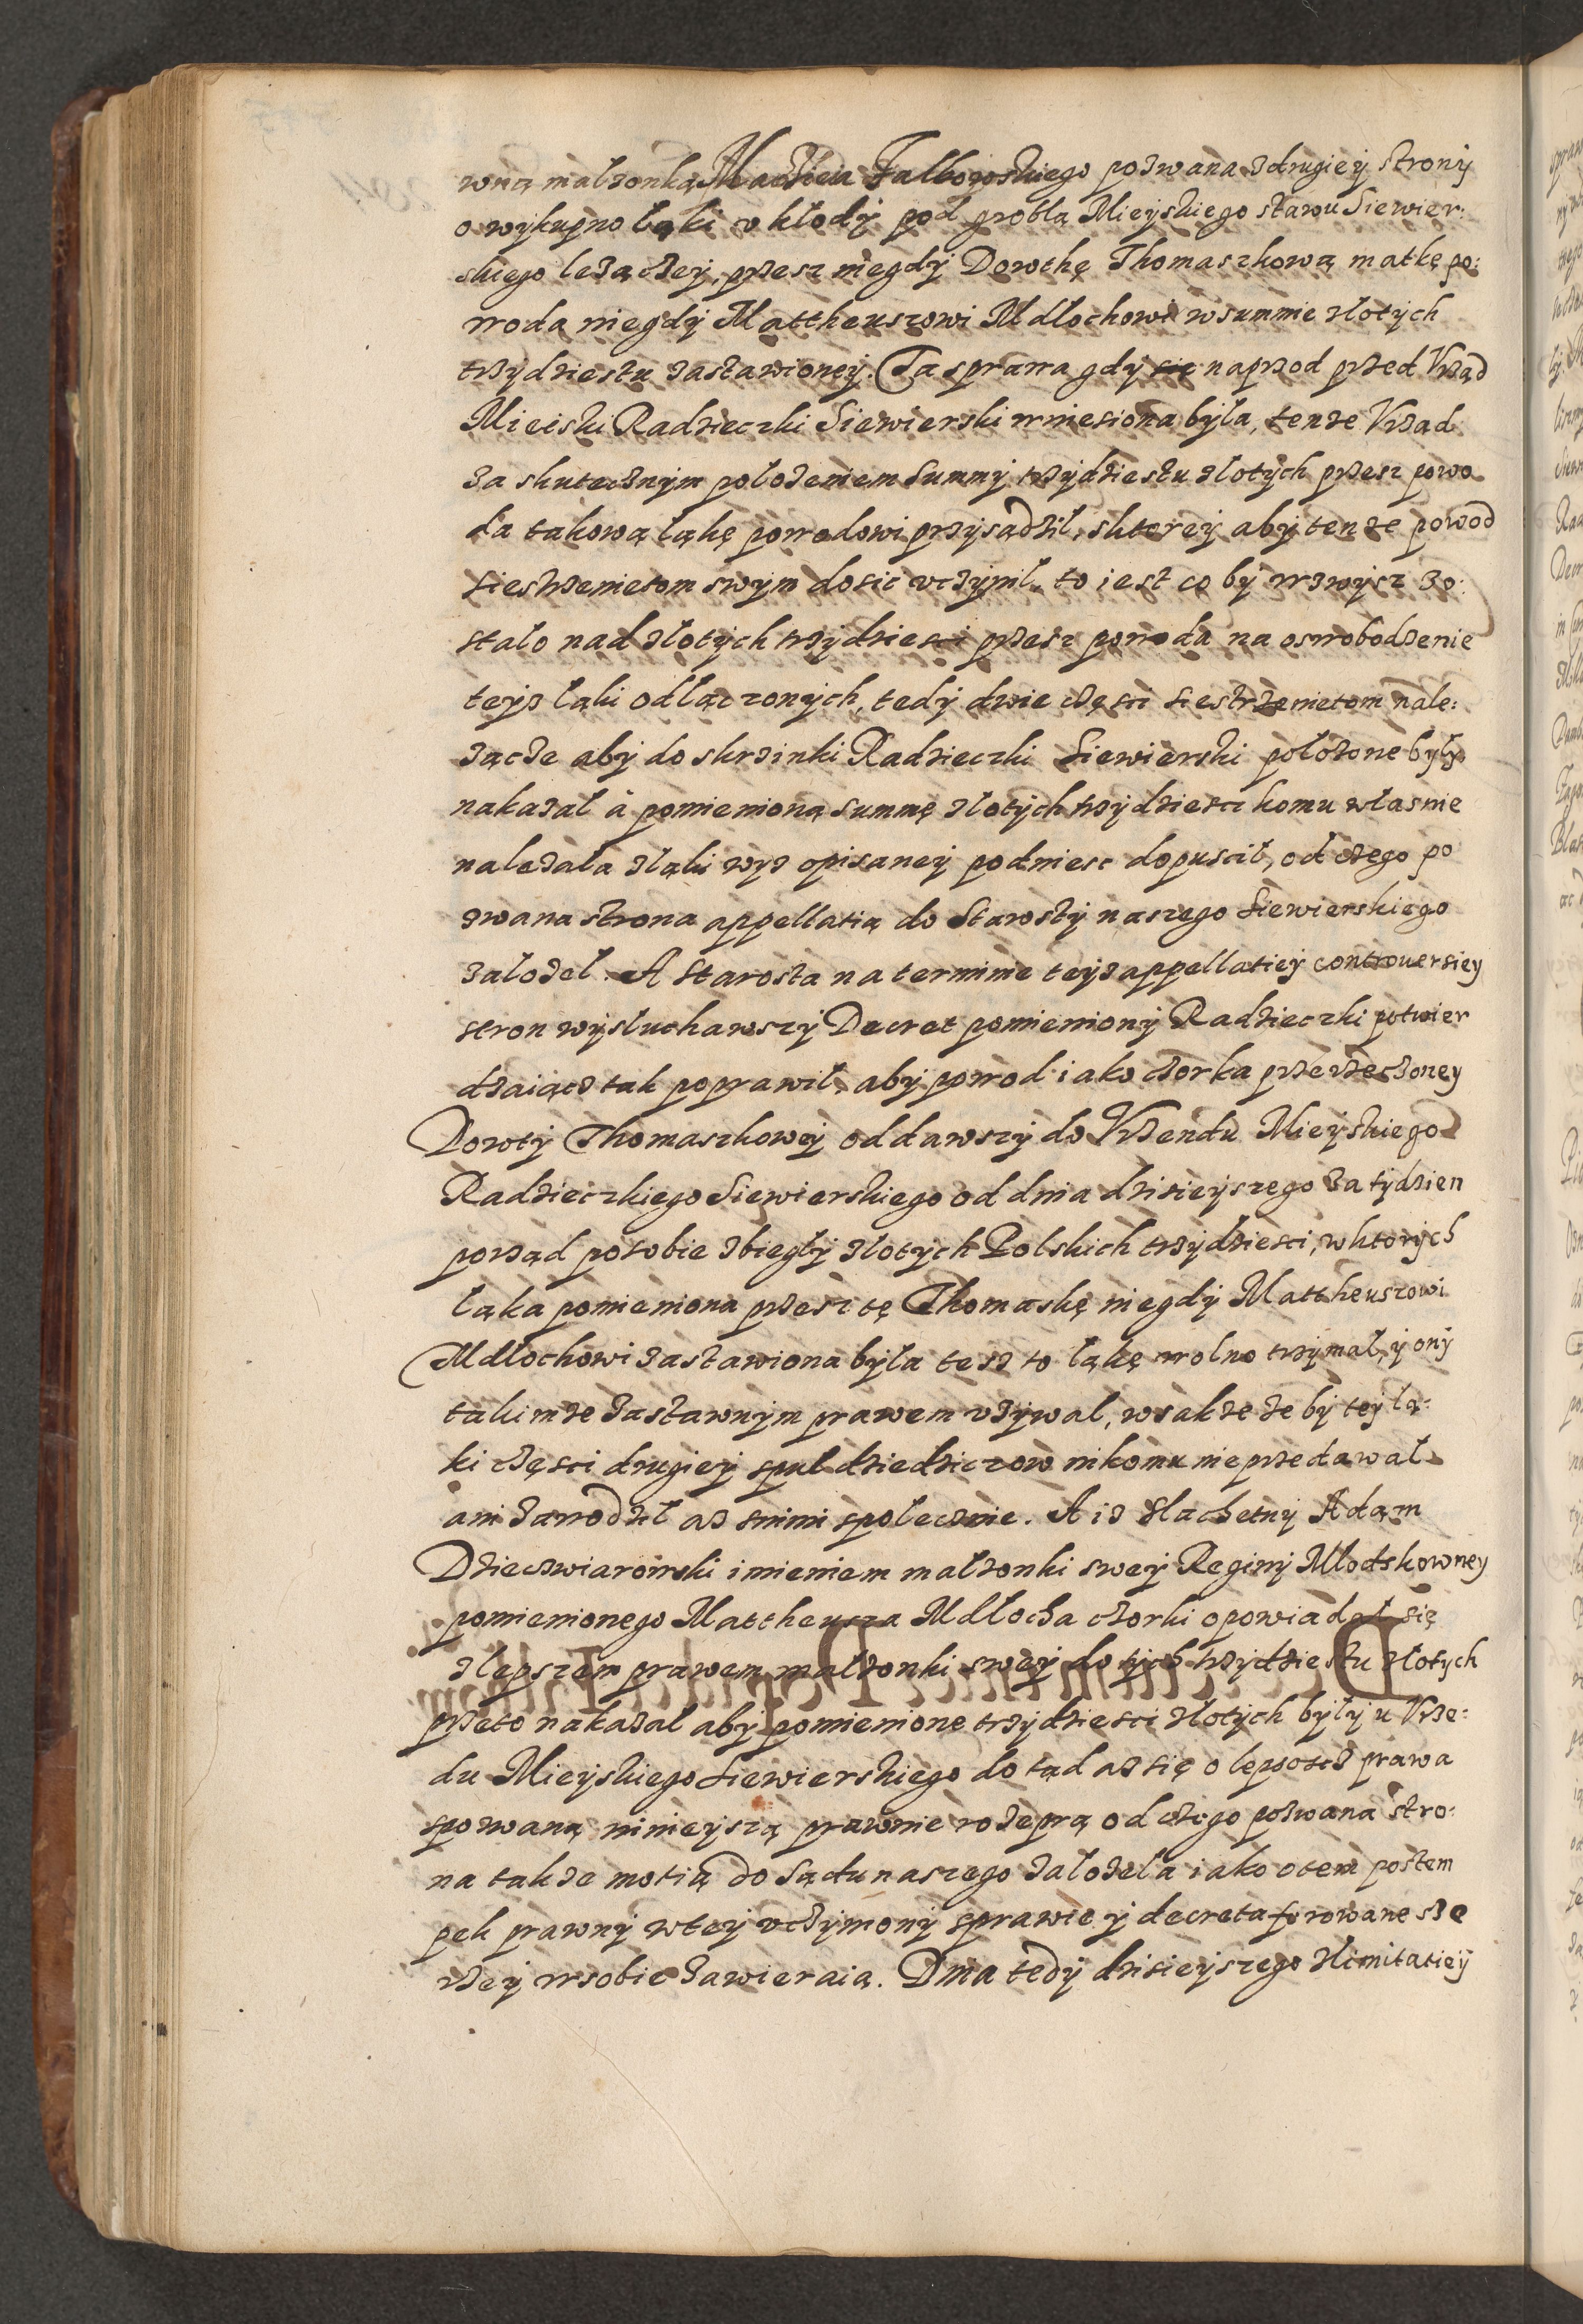 wną małżonką Macieia Falborowskiego pozwana z drugiey strony
o wykupno łąki v kłody pod groblą Mieyskiego stawu Siewier:
skiego leżączey, przesz niegdy Dorothę Thomaszkową matkę po:
woda niegdy Mattheuszowi Mdłochowi w summie złotych
trzydziestu zastawioney. Ta sprawa gdy się naprzod przed Vrząd
Mieiski Radzieczki Siewierski wniesiona była, tenże Vrząd
za skutecznym położeniem summy trzydziestu złotych przesz powo
da takową łąkę powodowi przysądził, s ktorey aby tenże powod
siestrzenietom swym dosic vczynil, to iest co by wzwysz zo:
stało nad złotych trzydziesci przesz powoda na oswobodzenie
teyz łąki odłączonych, tedy dwie częsci siestrzenietom nale:
żącze aby do skrzinki Radzieczki Siewierski położone były
nakazał à pomienioną summę złotych trzydziesci komu własnie
należała z łąki wyz opisaney podniesc dopuscił, od czego po
zwana strona appellatią do Starosty naszego Siewierskiego
założel. A Starosta na terminie teyz appellatiey controuersiey
stron wysłuchawszy Decret pomieniony Radzieczki potwier
dzaiącz tak poprawił, aby powod iako czorka przerzeczoney
Doroty Thomaszkowey oddawszy do Vrzendu Mieyskiego
Radzieczkiego Siewierskiego od dnia dzisieyszego za tydzien
porząd po sobie zbiegły złotych Polskich trzydziesci, w ktorych
łąka pomieniona przesz tę Thomaskę niegdy Mattheuszowi
Mdłochowi zastawiona była tesz to łąkę wolno trzymał, y ony
takimze zastawnym prawem vzywal, wsakze ze by tey łą:
ki częsci drugiey spul dziedziczow nikomu nie przedawał
ani zawodził az s nimi społecznie. A iz slachetny Adam
Dzieczwiarowski imieniem małżonki swey Reginy Młodskowney
pomienionego Mattheusza Mdłocha czorki opowiadał się
z lepszem prawem małżonki swey do tych trzydziestu złotych
przeto nakazał aby pomienione trzydziesci złotych były u Vrzę:
du Mieyskiego Siewierskiego do tąd az się o lepszosc prawa
s pozwaną ninieyszą prawnie rozeprą od czego pozwana stro:
na takze motią do sądu naszego założela iako o tem postem
pek prawny w tey vczyniony sprawie y decreta ferowane sze
rzey w sobie zawieraią. Dnia tedy dzisieyszego z limitatiey